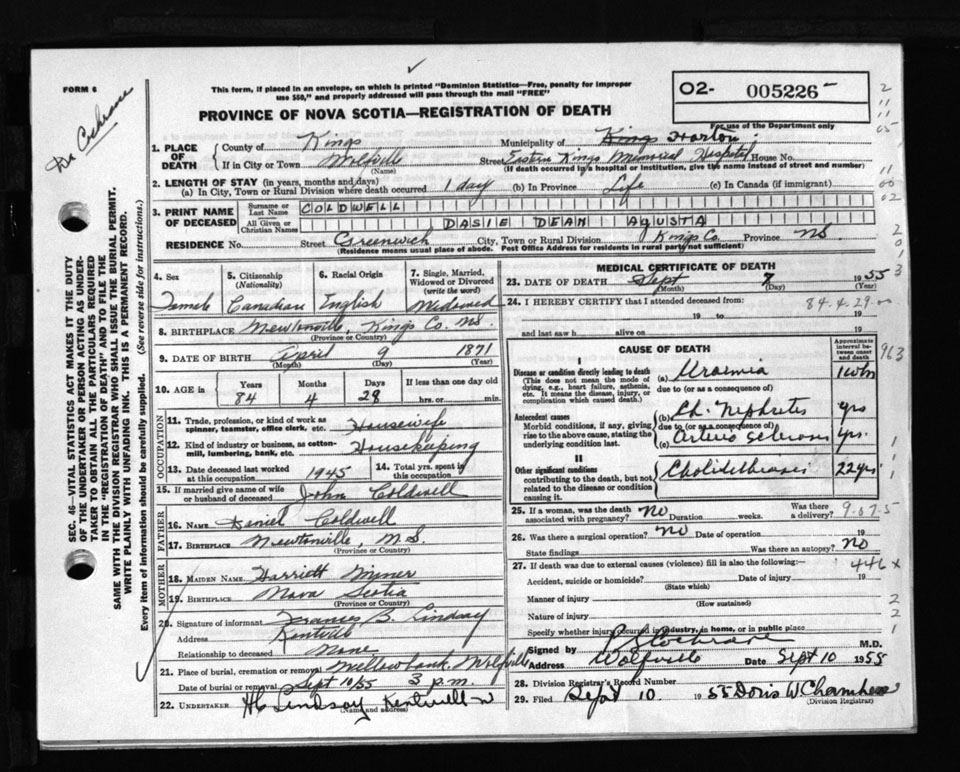 FORM 6
This form, if placed in an envelope, on which is printed "Dominion Statistics—Free, penalty for improper
use $50," and properly addressed will pass through the mail "FREE"
O2- 005226
PROVINCE OF NOVA SCOTIA—REGISTRATION OF DEATH
For use of the Department only
Dr Cochrane
1. PLACE OF DEATH
County of Kings Municipality of Kings Horton
If in City or Town Wolfville Street Eastern Kings Memorial Hospital House No.
(Name) (If death occurred in a hospital or institution, give the name instead of street and number)
2. LENGTH OF STAY (in years, months and days)
(a) In City, Town or Rural Division where death occurred 1 day (b) In Province Life (c) In Canada (if immigrant)
3. PRINT NAME OF DECEASED
Surname or Last Name COLDWELL
All Given or Christian Names DASIE DEAN AGUSTA
RESIDENCE No. Street Greenwich City, Town or Rural Division Kings Co. Province NS
(Residence means usual place of abode. Post Office Address for residents in rural parts not sufficient)
4. Sex 5. Citizenship (Nationality) 6. Racial Origin 7. Single, Married, Widowed or Divorced (write the word)
Female Canadian English Widowed
8. BIRTHPLACE Newtonville, Kings Co. NS.
(Province or Country)
9. DATE OF BIRTH April 9 1871
(Month) (Day) (Year)
10. AGE in Years Months Days If less than one day old
84 4 28 hrs. or min.
OCCUPATION
11. Trade, profession, or kind of work as spinner, teamster, office clerk, etc. Housewife
12. Kind of industry or business, as cotton-mill, lumbering, bank, etc. Housekeeping
13. Date deceased last worked at this occupation 1945 14. Total yrs. spent in this occupation
15. If married give name of wife or husband of deceased John Coldwell
FATHER
16. NAME Daniel Coldwell
17. BIRTHPLACE Newtonville, N.S.
(Province or Country)
MOTHER
18. MAIDEN NAME Harriett
19. BIRTHPLACE Nova Scotia
(Province or Country)
20. Signature of informant Frances B. Lindsay
Address Kentville
Relationship to deceased None
21. Place of burial, cremation or removal Willowbank, Wolfville
Date of burial or removal Sept 10/55 3 p.m.
22. UNDERTAKER HC Lindsay Kentville
(Name and address)
MEDICAL CERTIFICATE OF DEATH
23. DATE OF DEATH Sept 7 1955
(Month) (Day)
24. I HEREBY CERTIFY that I attended deceased from:
84.4.29.00
19 to 19
and last saw h alive on 19
CAUSE OF DEATH
Approximate interval between onset and death
963
I
Disease or condition directly leading to death (a) Uraemia 1 wk
(This does not mean the mode of dying, e.g., heart failure, asthenia, etc. It means the disease, injury, or complication which caused death.)
due to (or as a consequence of)
Antecedent causes (b) Ch. Nephritis yrs
Morbid conditions, if any, giving rise to the above cause, stating the underlying condition last.
due to (or as a consequence of)
(c) Arterio sclerosis yrs.
II
Other significant conditions contributing to the death, but not related to the disease or condition causing it. 22 yrs
25. If a woman, was the death associated with pregnancy? No Duration weeks. Was there a delivery? 9.07.5
26. Was there a surgical operation? No Date of operation 19
State findings Was there an autopsy? No
27. If death was due to external causes (violence) fill in also the following:—
446x
Accident, suicide or homicide? Date of injury 19
(State which)
Manner of injury
(How sustained)
Nature of injury
Specify whether injury occurred in industry, in home, or in public place
Signed by Cochrane M.D.
Address Wolfville Date Sept 10 1955
28. Division Registrar's Record Number
29. Filed Sept 10 1955 Doris W. Chambers
(Division Registrar)
SEC. 46—VITAL STATISTICS ACT MAKES IT THE DUTY
OF THE UNDERTAKER OR PERSON ACTING AS UNDER-
TAKER TO OBTAIN ALL THE PARTICULARS REQUIRED
IN THE "REGISTRATION OF DEATH" AND TO FILE THE
SAME WITH THE DIVISION REGISTRAR WHO SHALL ISSUE THE BURIAL PERMIT.
WRITE PLAINLY WITH UNFADING INK. THIS IS A PERMANENT RECORD.
Every item of information should be carefully supplied. (See reverse side for instructions.)